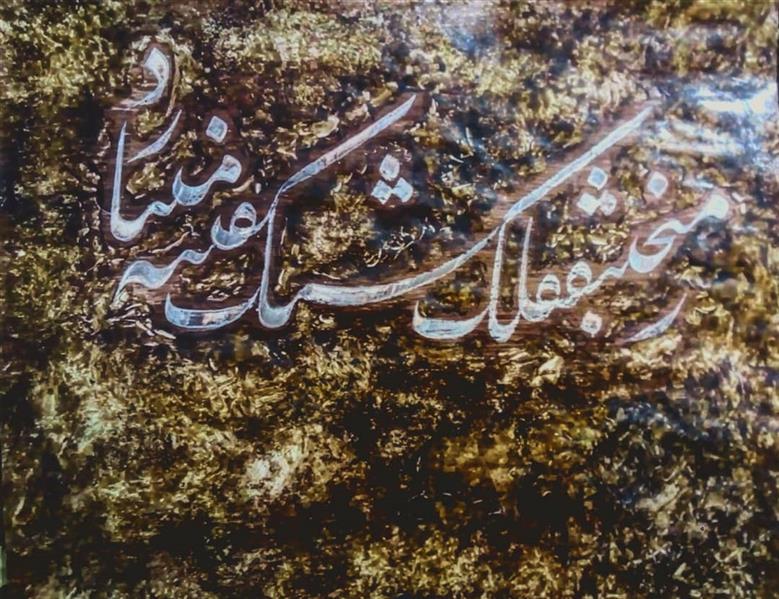 ز منجنیق فلک سنگ فتنه میبارد